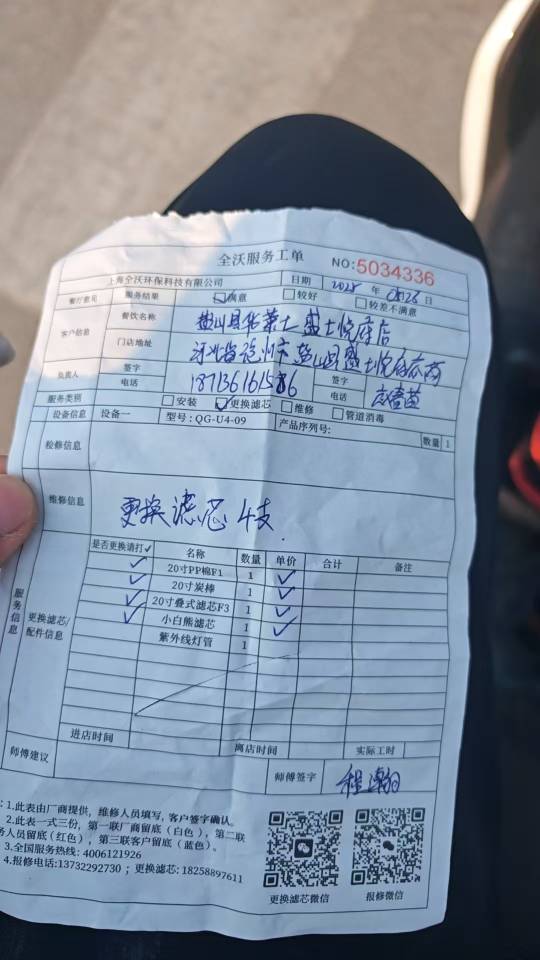 全沃服务工单 NO:5034336
上海全沃环保科技有限公司 日期 2025 年 08.26日
餐厅意见 服务结果 ☑满意 □较好 □较差不满意
客户信息 餐饮名称 盐山县华莱士盛士悦府店
门店地址 河北省沧州市盐山县盛士悦府
负责人 签字 签字
电话 187136161586 电话
服务类别 □安装 ☑更换滤芯 □维修 □管道消毒
设备信息 设备一 型号:QG-U4-09 产品序列号: 数量 1
检修信息
维修信息 更换滤芯4支.
服务信息 更换滤芯/配件信息
是否更换请打✓ 名称 数量 单价 合计 备注
✓ 20寸PP棉F1 1 ✓
✓ 20寸炭棒 1 ✓
✓ 20寸叠式滤芯F3 1 ✓
✓ 小白熊滤芯 1 ✓
紫外线灯管 1
进店时间 离店时间 实际工时
师傅建议 师傅签字 程瀚
:1.此表由厂商提供，维修人员填写，客户签字确认。
2.此表一式三份，第一联厂商留底（白色），第二联
务人员留底(红色），第三联客户留底（蓝色）。
3.全国服务热线: 4006121926
4.报修电话:13732292730 ; 更换滤芯: 18258897611
更换滤芯微信 报修微信